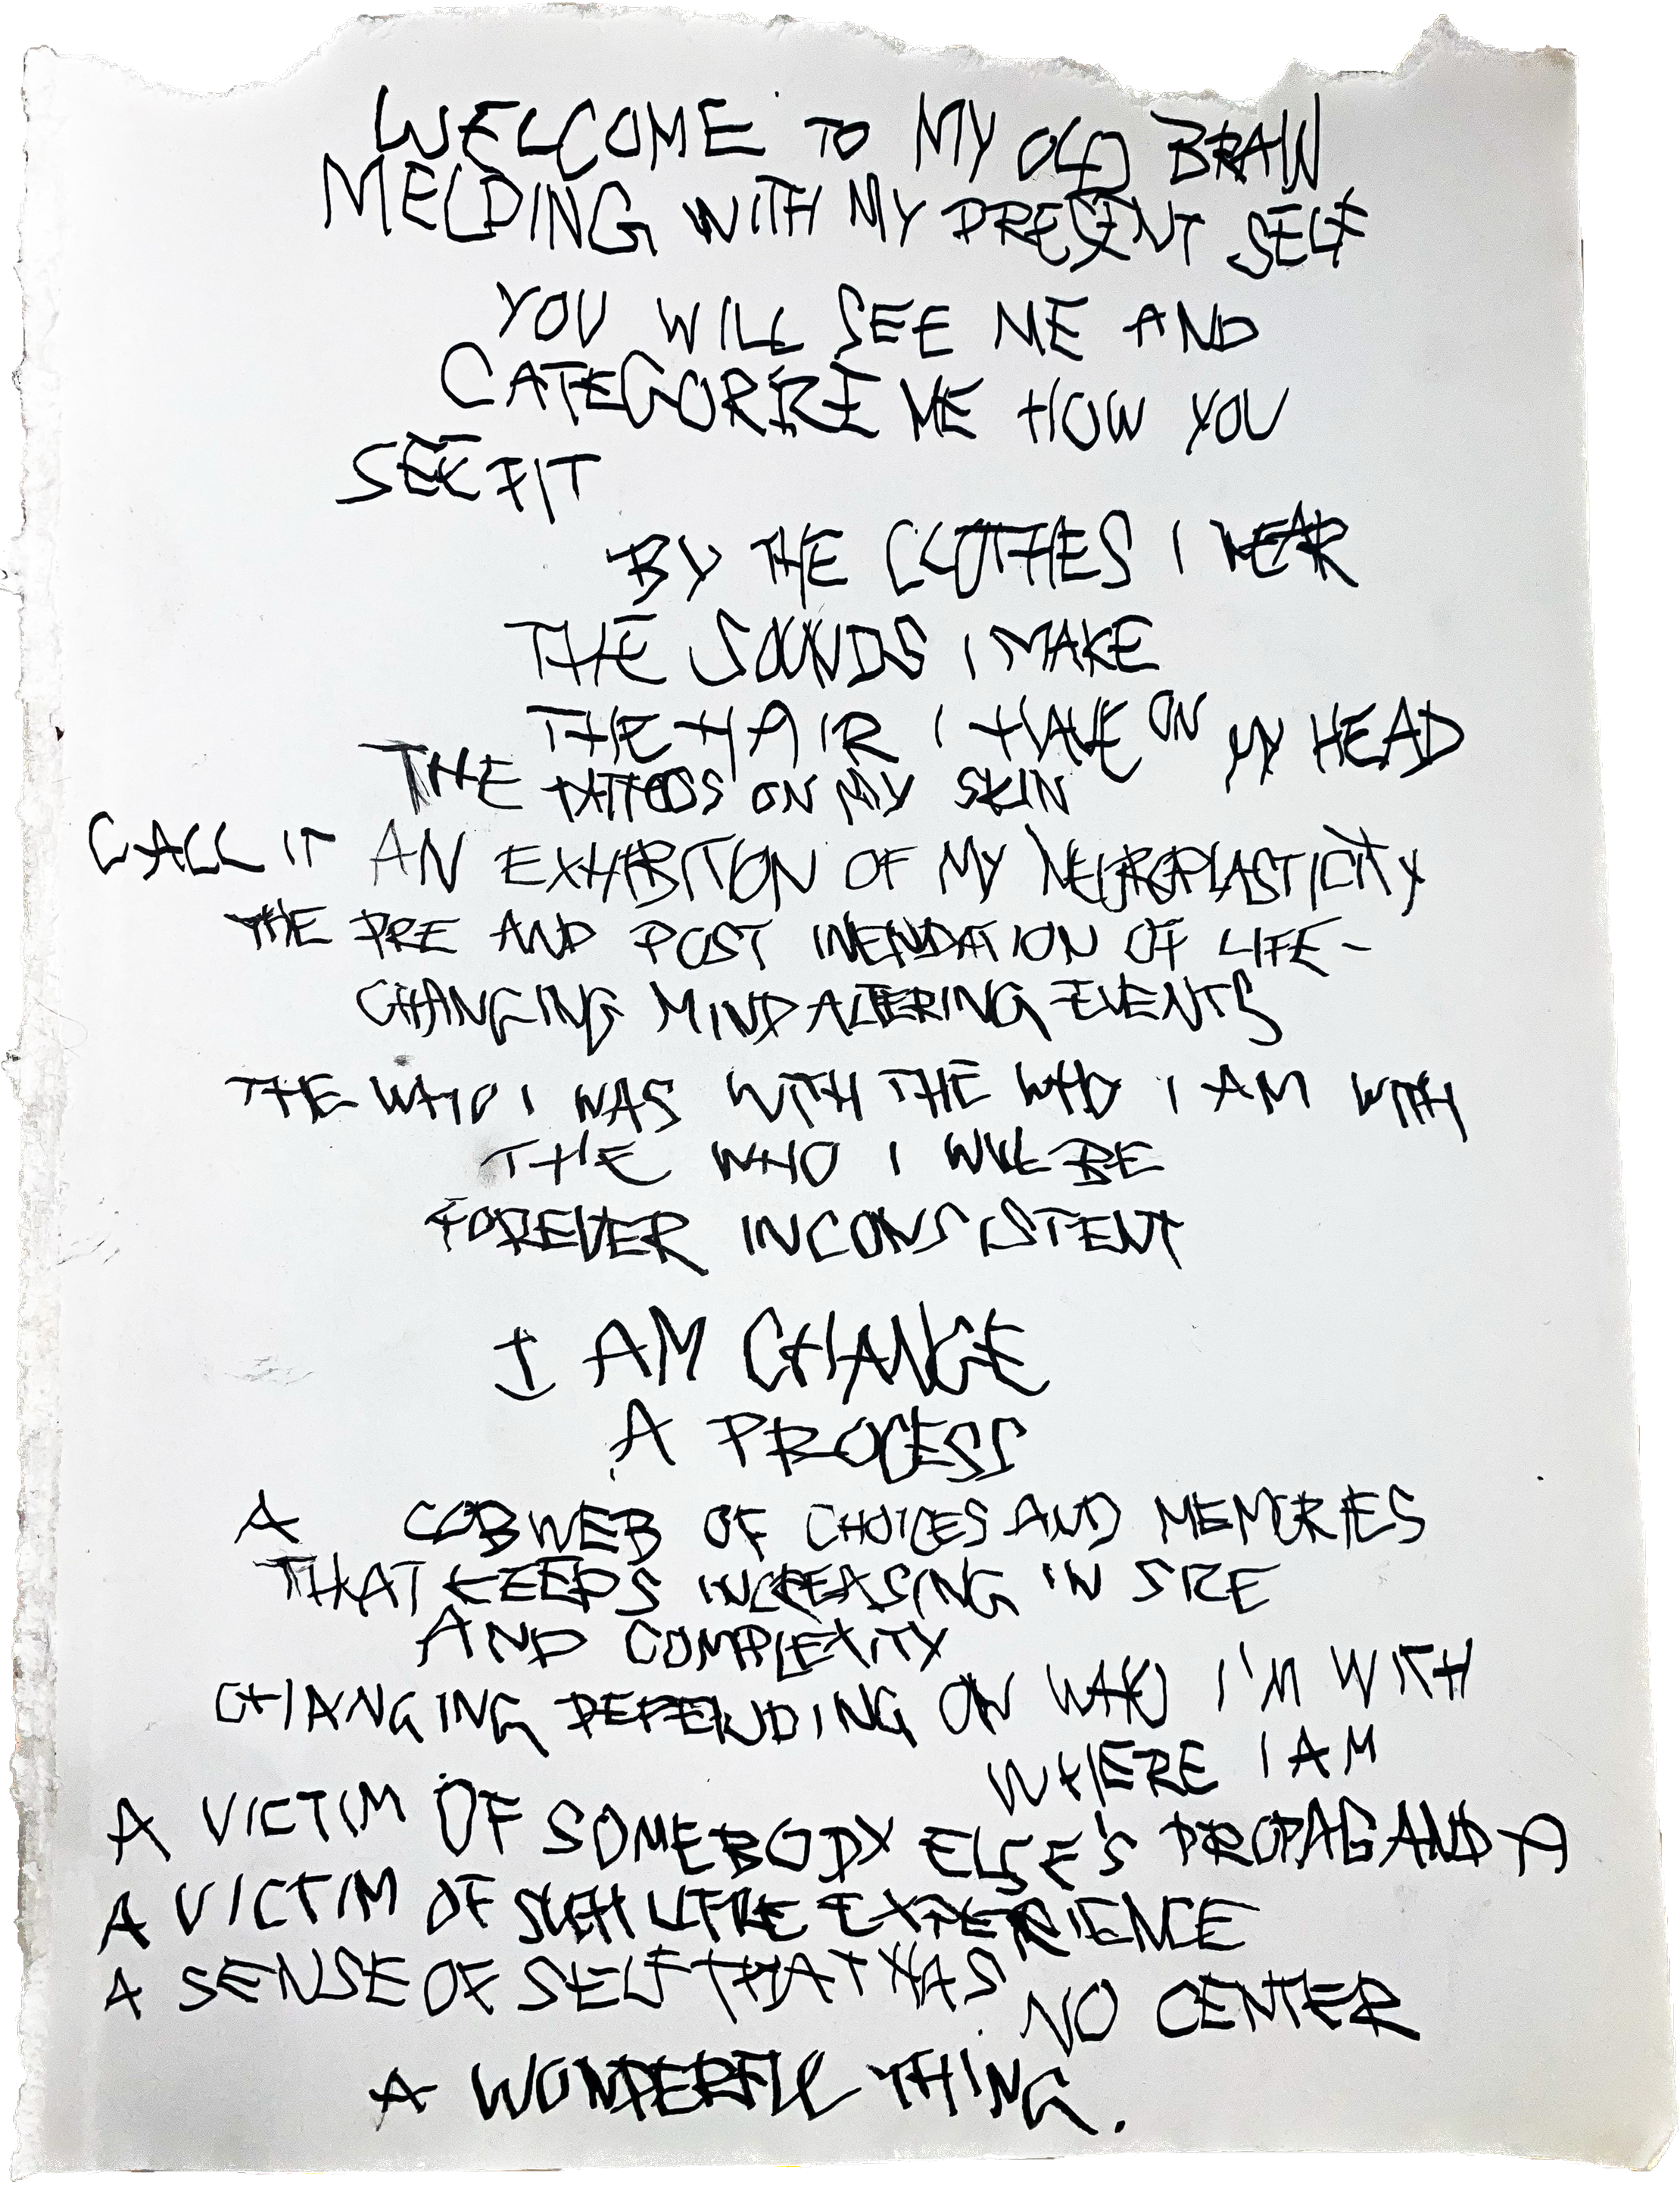 WELCOME TO MY OLD BRAIN
MELDING WITH MY PRESENT SELF
YOU WILL SEE ME AND
CATEGORIZE ME HOW YOU
SEE FIT
BY THE CLOTHES I WEAR
THE SOUNDS I MAKE
THE HAIR I HAVE ON MY HEAD
THE TATTOOS ON MY SKIN
CALL IT AN EXHIBITION OF MY NEUROPLASTICITY
THE PRE AND POST INENDATION OF LIFE-
CHANGING MIND ALTERING EVENTS
THE WHO I WAS WITH THE WHO I AM WITH
THE WHO I WILL BE
FOREVER INCONSISTENT
I AM CHANGE
A PROCESS
A COBWEB OF CHOICES AND MEMORIES
THAT KEEPS INCREASING IN SIZE
AND COMPLEXITY
CHANGING DEPENDING ON WHO I'M WITH
WHERE I AM
A VICTIM OF SOMEBODY ELSE'S PROPAGANDA
A VICTIM OF SUCH LITTLE EXPERIENCE
A SENSE OF SELF THAT HAS NO CENTER
A WONDERFUL THING.